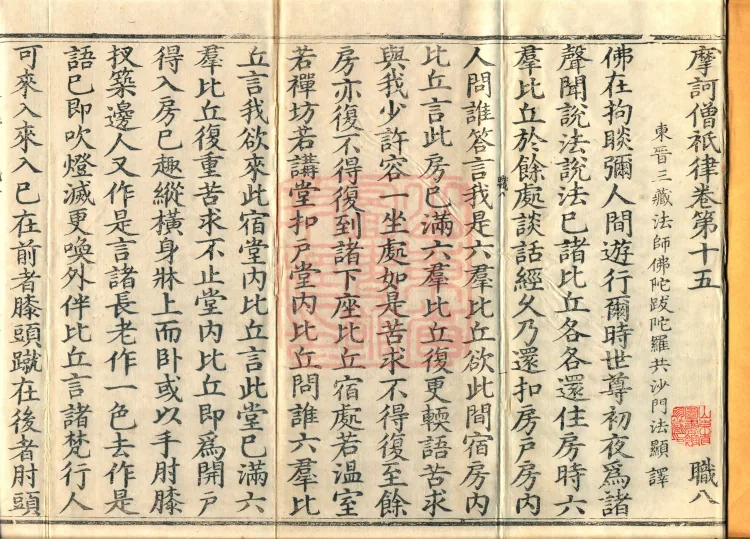 摩訶僧祇律卷第十五 職八
東晉三藏法師佛陀跋陀羅共沙門法顯 譯
佛在拘睒彌人間遊行爾時世尊初夜爲諸
聲聞說法說法已諸比丘各各還住房時六
羣比丘於餘處談話經久乃還扣房戶房內
人問誰答言我是六羣比丘欲此間宿房內
比丘言此房已滿六羣比丘復更輭語苦求
與我少許容一坐處如是苦求不得復至餘
房亦復不得復到諸下座比丘宿處若溫室
若禪坊若講堂扣戶堂內比丘問誰六羣比
丘言我欲來此宿堂內比丘言此堂已滿六
羣比丘復重苦求不止堂內比丘即爲開戶
得入房已趣縱橫身牀上而卧或以手肘膝
扠築邊人又作是言諸長老作一色去作是
語已即吹燈滅更喚外伴比丘言諸梵行人
可來入來入已在前者膝頭蹴在後者肘頭